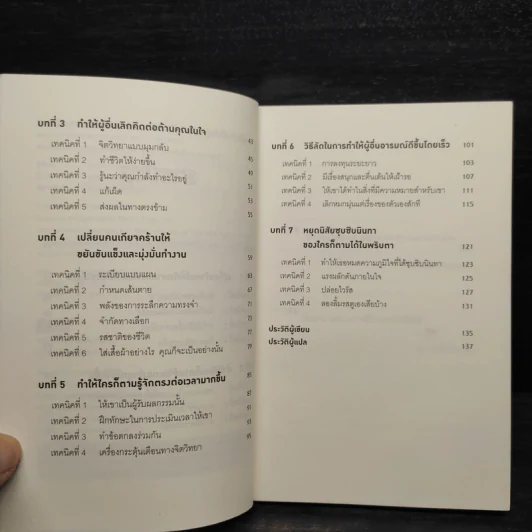 บทที่ 3 ทำให้ผู้อื่นเลิกคิดต่อต้านคุณในใจ 43
เทคนิคที่ 1 จิตวิทยาแบบมุมกลับ 45
เทคนิคที่ 2 ทำชีวิตให้ง่ายขึ้น
เทคนิคที่ 3 รู้นะว่าคุณกำลังทำอะไรอยู่ 51
เทคนิคที่ 4 แก้เผ็ด
เทคนิคที่ 5 ส่งผลในทางตรงข้าม 55
บทที่ 4 เปลี่ยนคนเกียจคร้านให้
ขยันขันแข็งและมุ่งมั่นทำงาน 59
เทคนิคที่ 1 ระเบียบแบบแผน
เทคนิคที่ 2 กำหนดเส้นตาย
เทคนิคที่ 3 พลังของการระลึกความทรงจำ 71
เทคนิคที่ 4 จำกัดทางเลือก
เทคนิคที่ 5 รสชาติของชีวิต 77
เทคนิคที่ 6 ใส่เสื้อผ้าอย่างไร คุณก็จะเป็นอย่างนั้น 79
บทที่ 5 ทำให้ใครก็ตามรู้จักตรงต่อเวลามากขึ้น
เทคนิคที่ 1 ให้เขาเป็นผู้รับผลกรรมนั้น 87
เทคนิคที่ 2 ฝึกทักษะในการประเมินเวลาให้เขา
เทคนิคที่ 3 ทำข้อตกลงร่วมกัน
เทคนิคที่ 4 เครื่องกระตุ้นเตือนทางจิตวิทยา
บทที่ 6 วิธีลัดในการทำให้ผู้อื่นอารมณ์ดีขึ้นโดยเร็ว 101
เทคนิคที่ 1 การลงทุนระยะยาว 103
เทคนิคที่ 2 มีเรื่องสนุกและตื่นเต้นให้เฝ้ารอ 107
เทคนิคที่ 3 ให้เขาได้ทำในสิ่งที่มีความหมายสำหรับเขา 111
เทคนิคที่ 4 เลิกหมกมุ่นแต่เรื่องของตัวเองสักที 115
บทที่ 7 หยุดนิสัยซุบซิบนินทา
ของใครก็ตามได้ในพริบตา 121
เทคนิคที่ 1 ทำให้เธอหมดความภูมิใจที่ได้ซุบซิบนินทา 123
เทคนิคที่ 2 แรงผลักดันภายในใจ 125
เทคนิคที่ 3 ปล่อยไวรัส 127
เทคนิคที่ 4 ลองลิ้มรสดูเองเสียบ้าง 131
ประวัติผู้เขียน 135
ประวัติผู้แปล 137